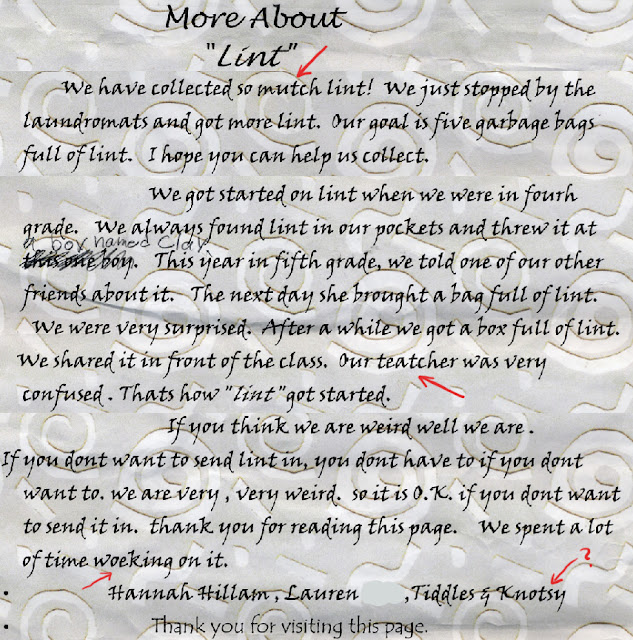 More About
"Lint"
We have collected so mutch lint! We just stopped by the
laundromats and got more lint. Our goal is five garbage bags
full of lint. I hope you can help us collect.
We got started on lint when we were in fourh
grade. We always found lint in our pockets and threw it at
a boy named Clay
this one boy. This year in fifth grade, we told one of our other
friends about it. The next day she brought a bag full of lint.
We were very surprised. After a while we got a box full of lint.
We shared it in front of the class. Our teatcher was very
confused . Thats how "lint" got started.
If you think we are weird well we are .
If you dont want to send lint in, you dont have to if you dont
want to. we are very , very weird. so it is O.K. if you dont want
to send it in. thank you for reading this page. We spent a lot
of time woeking on it.
?
Hannah Hillam , Lauren ,Tiddles & Knotsy
Thank you for visiting this page.